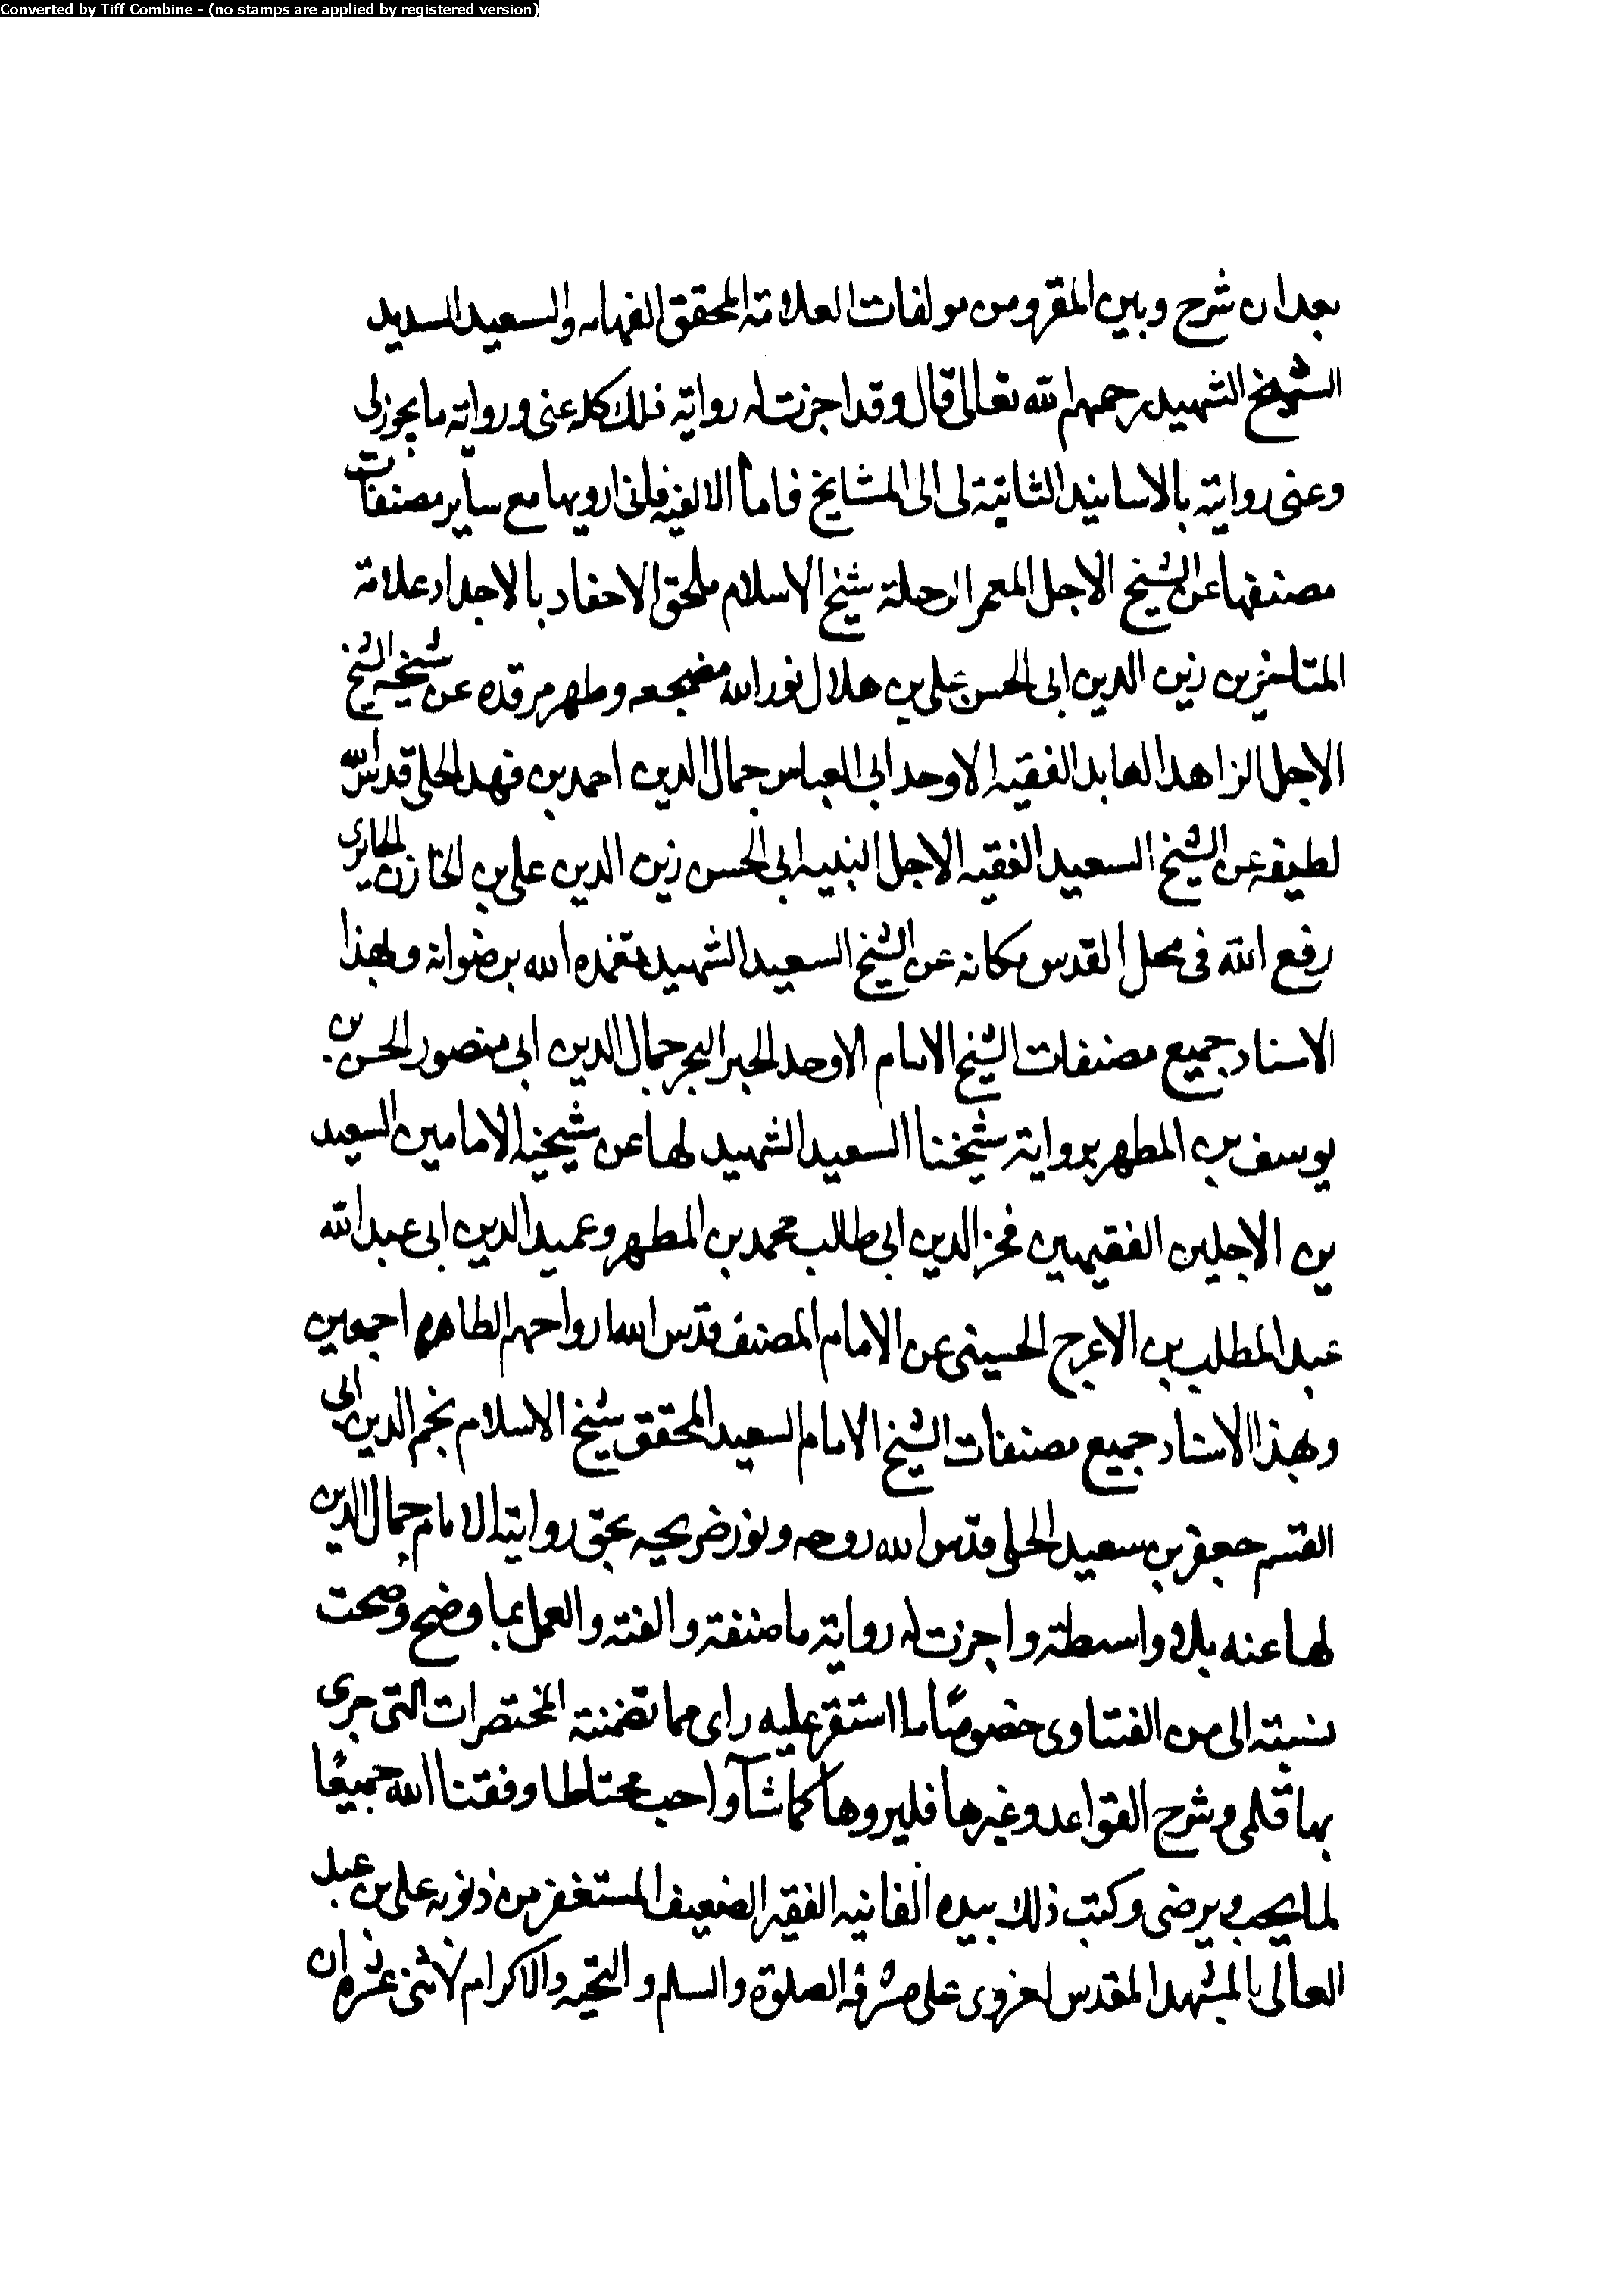 Converted by Tiff Combine - (no stamps are applied by registered version)
بعد ان شرح وبين المقرو من مولفات العلامة المحقق الفهامه والسعيد السديد
الشيخ الشهيد رحمهم الله تعالى قال وقد اجزت له رواية ذلك كله عنى ورواية ما يجوز لى
وعنى رواية بالاسانيد الثابتة لى الى المشايخ فاما الالفيه فانى ارويها مع ساير مصنفات
مصنفها عن الشيخ الاجل المعمر الرحلة شيخ الاسلام ملحق الاحفاد بالاجداد علامة
المتاخرين زين الدين ابى الحسن على بن هلال نور الله مضجعه وطهر مرقده عن شيخه الشيخ
الاجل الزاهد العابد الفقيه الاوحد ابى العباس جمال الدين احمد بن فهد الحلى قدس الله
لطيفه عن الشيخ السعيد الفقيه الاجل النبيه ابى الحسن زين الدين على بن الخازن الحايرى
رفع الله فى محل القدس مكانه عن الشيخ السعيد الشهيد تغمده الله برضوانه وبهذا
الاسناد جميع مصنفات الشيخ الامام الاوحد الحبر البحر جمال الدين ابى منصور الحسن بن
يوسف بن المطهر برواية شيخنا السعيد الشهيد لها عن شيخيه الامامين السعيد
ين الاجلين الفقيهين فخر الدين ابى طالب محمد بن المطهر وعميد الدين ابى عبد الله
عبد المطلب بن الاعرج الحسينى عن الامام المصنف قدس الله ارواحهم الطاهره اجمعين
وبهذا الاسناد جميع مصنفات الشيخ الامام السعيد المحقق شيخ الاسلام نجم الدين ابى
القسم جعفر بن سعيد الحلى قدس الله روحه ونور ضريحه بحق رواية الامام جمال الدين
لها عنه بلا واسطة واجزت له رواية ما صنفته والفته والعمل بما وضح وصحت
نسبته الى من الفتاوى خصوصًا ما استقر عليه راى مما تضمنته المختصرات التى جرى
بها قلمى وشرح القواعد وغيرها فليروها كما شآ واحب محتاطا وفقنا الله جميعًا
لما يحب ويرضى وكتب ذلك بيده الفانيه الفقير الضعيف المستغفر من ذنوبه على بن عبد
العالى بالمشهد المقدس الغروى على مشرفه الصلوة والسلم والتحيه والاكرام لاثنى عشر ان